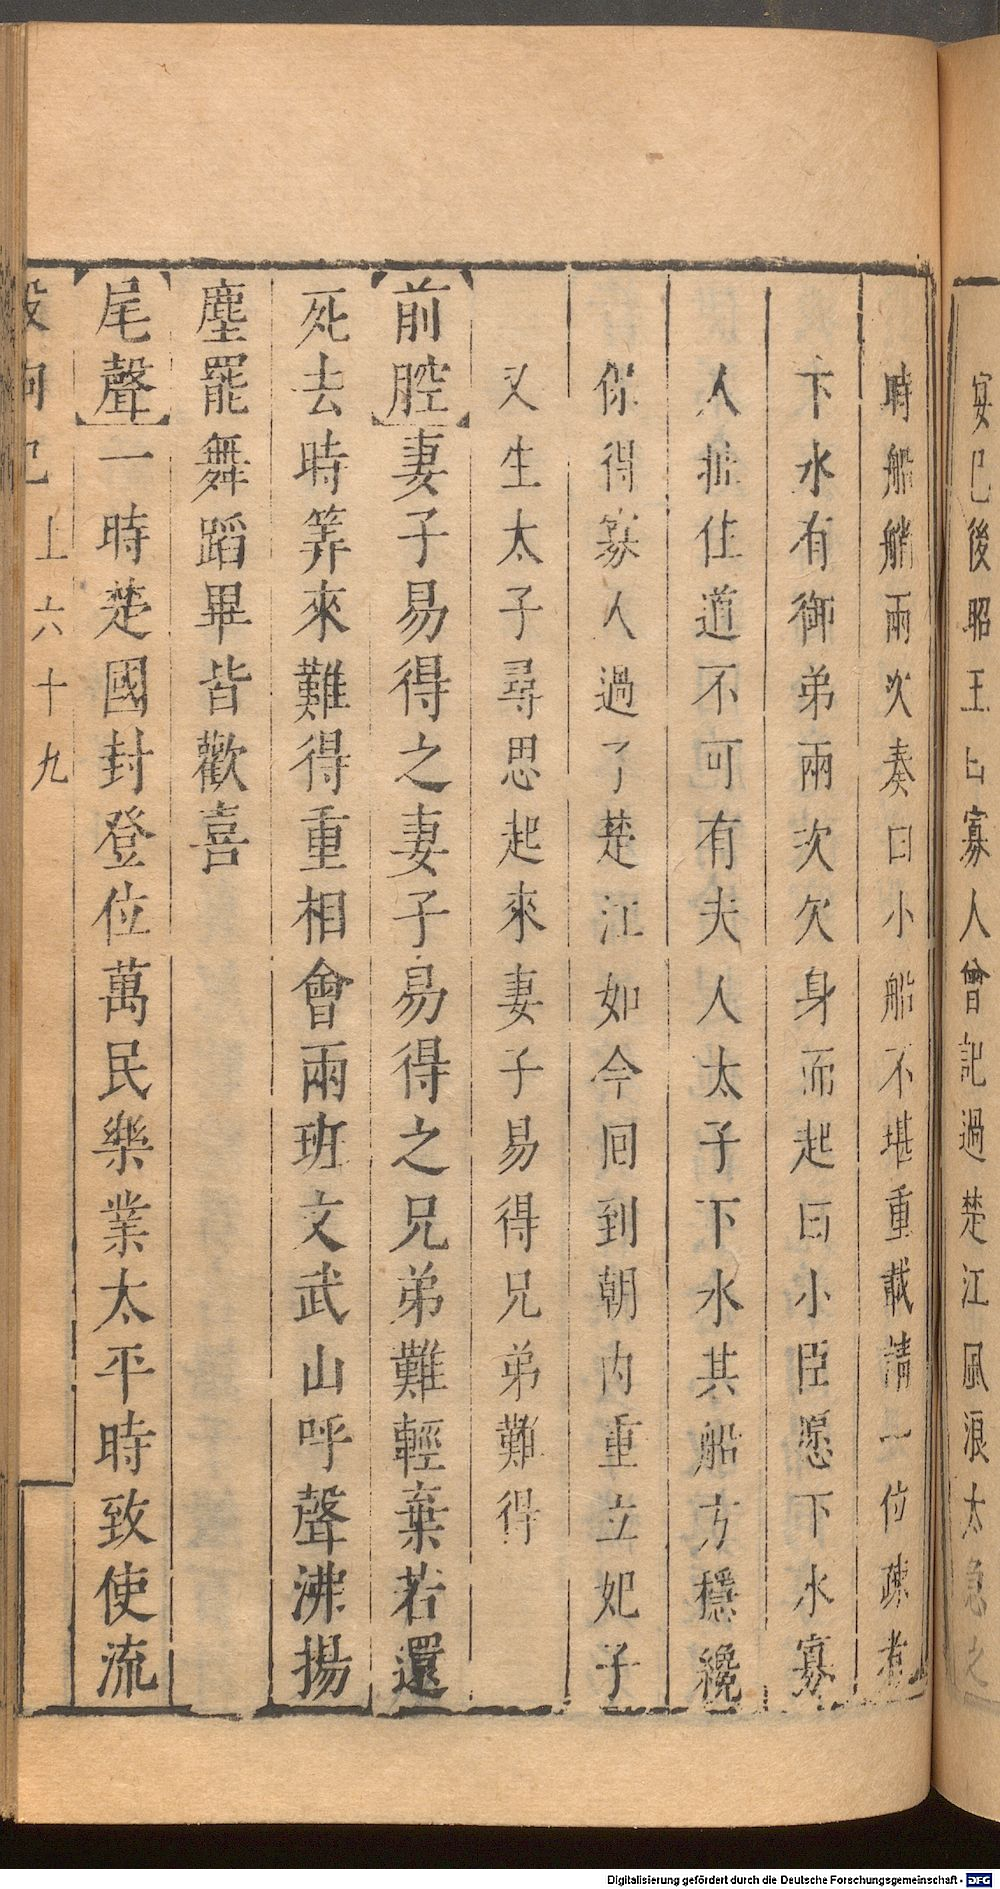 宴已後昭王曰寡人曾記過楚江風浪太急之
時船艄兩次奏曰小船不堪重載請一位疎者
下水有御弟兩次欠身而起曰小臣愿下水寡
人扯住道不可有夫人太子下水其船方穩纔
你得寡人過了楚江如今囘到朝內重立妃子
又生太子尋思起來妻子易得兄弟難得
前腔妻子易得之妻子易得之兄弟難輕棄若還
死去時筭來難得重相會兩班文武山呼聲沸揚
塵罷舞蹈畢皆歡喜
尾聲一時楚國封登位萬民樂業太平時致使流
上六十九
Digitalisierung gefördert durch die Deutsche Forschungsgemeinschaft - DFG